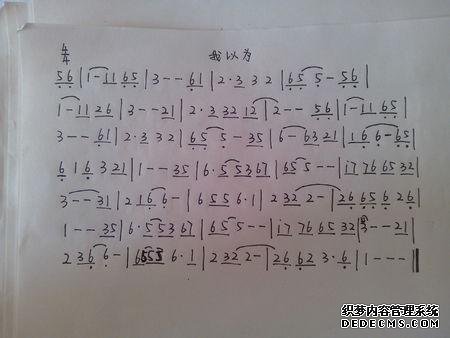 4/4 我以为
56 | 1-11 65 | 3--61 | 2·3 3 2 | 65 5-56 |
1-11 26 | 3--21 | 2·3 32 12 | 2--56 | 1-11 65 |
3--61 | 2·3 32 | 65 5-35 | 6-63 21 | 1 6 6-65 |
6 1 6 3 21 | 1--35 | 6·5 53 67 | 65 5-- | i7 76 65 32 |
3--31 | 2 1 6 6- | 6 5 5 6·1 | 2 32 2- | 26 65 6 26 |
1--35 | 6·5 53 67 | 65 5-- | i7 76 65 32 | 3--21 |
2 36 6- | 6 5 5 6·1 | 2 32 2- | 26 62 3·6 | 1---
织梦内容管理系统
DEDECMS.COM